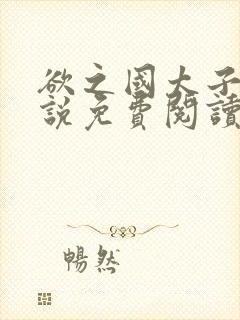 欲之國大子
說免費閱讀
暢然